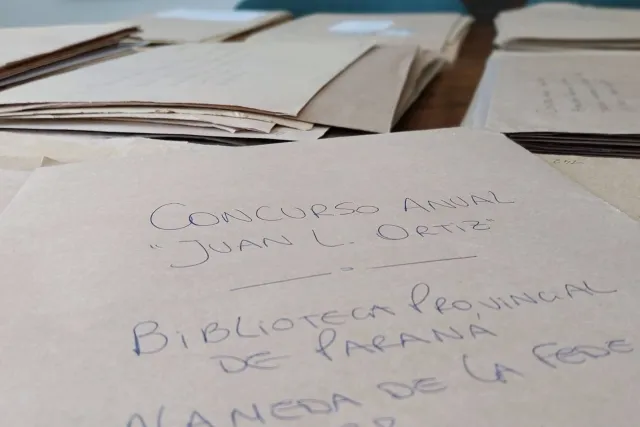 CONCURSO ANUAL
"JUAN L. ORTIZ"
BIBLIOTECA PROVINCIAL
DE PARANA
ALAMEDA DE LA FEDE